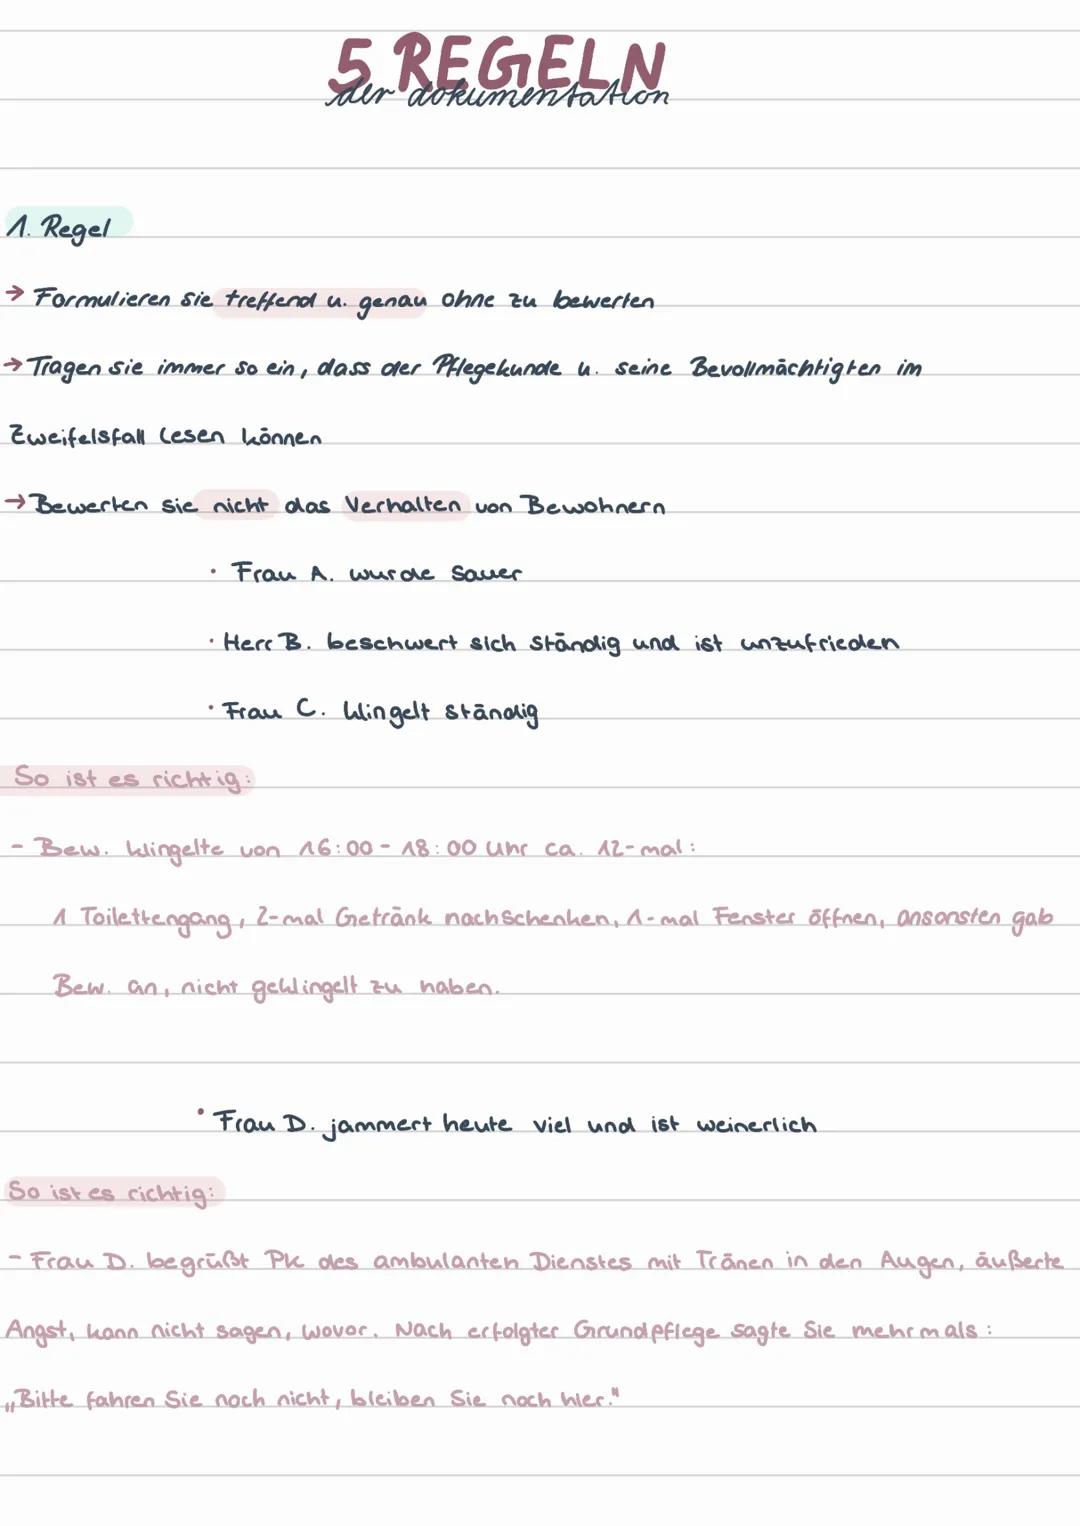 5 REGELN
der dokumentation
1. Regel
→ Formulieren sie treffend u. genau ohne zu bewerten
→ Tragen sie immer so ein, dass der Pflegekunde u. seine Bevollmächtigten im
Zweifelsfall lesen können
→ Bewerten sie nicht das Verhalten von Bewohnern
· Frau A. wurde sauer
· Herr B. beschwert sich ständig und ist unzufrieden
· Frau C. klingelt ständig
So ist es richtig:
- Bew. klingelte von 16:00 - 18:00 Uhr ca. 12-mal:
1 Toilettengang, 2-mal Getränk nachschenken, 1-mal Fenster öffnen, ansonsten gab
Bew. an, nicht geklingelt zu haben.
· Frau D. jammert heute viel und ist weinerlich
So ist es richtig:
- Frau D. begrüßt Pk des ambulanten Dienstes mit Tränen in den Augen, äußerte
Angst, kann nicht sagen, wovor. Nach erfolgter Grundpflege sagte Sie mehrmals:
„Bitte fahren Sie noch nicht, bleiben Sie noch hier."